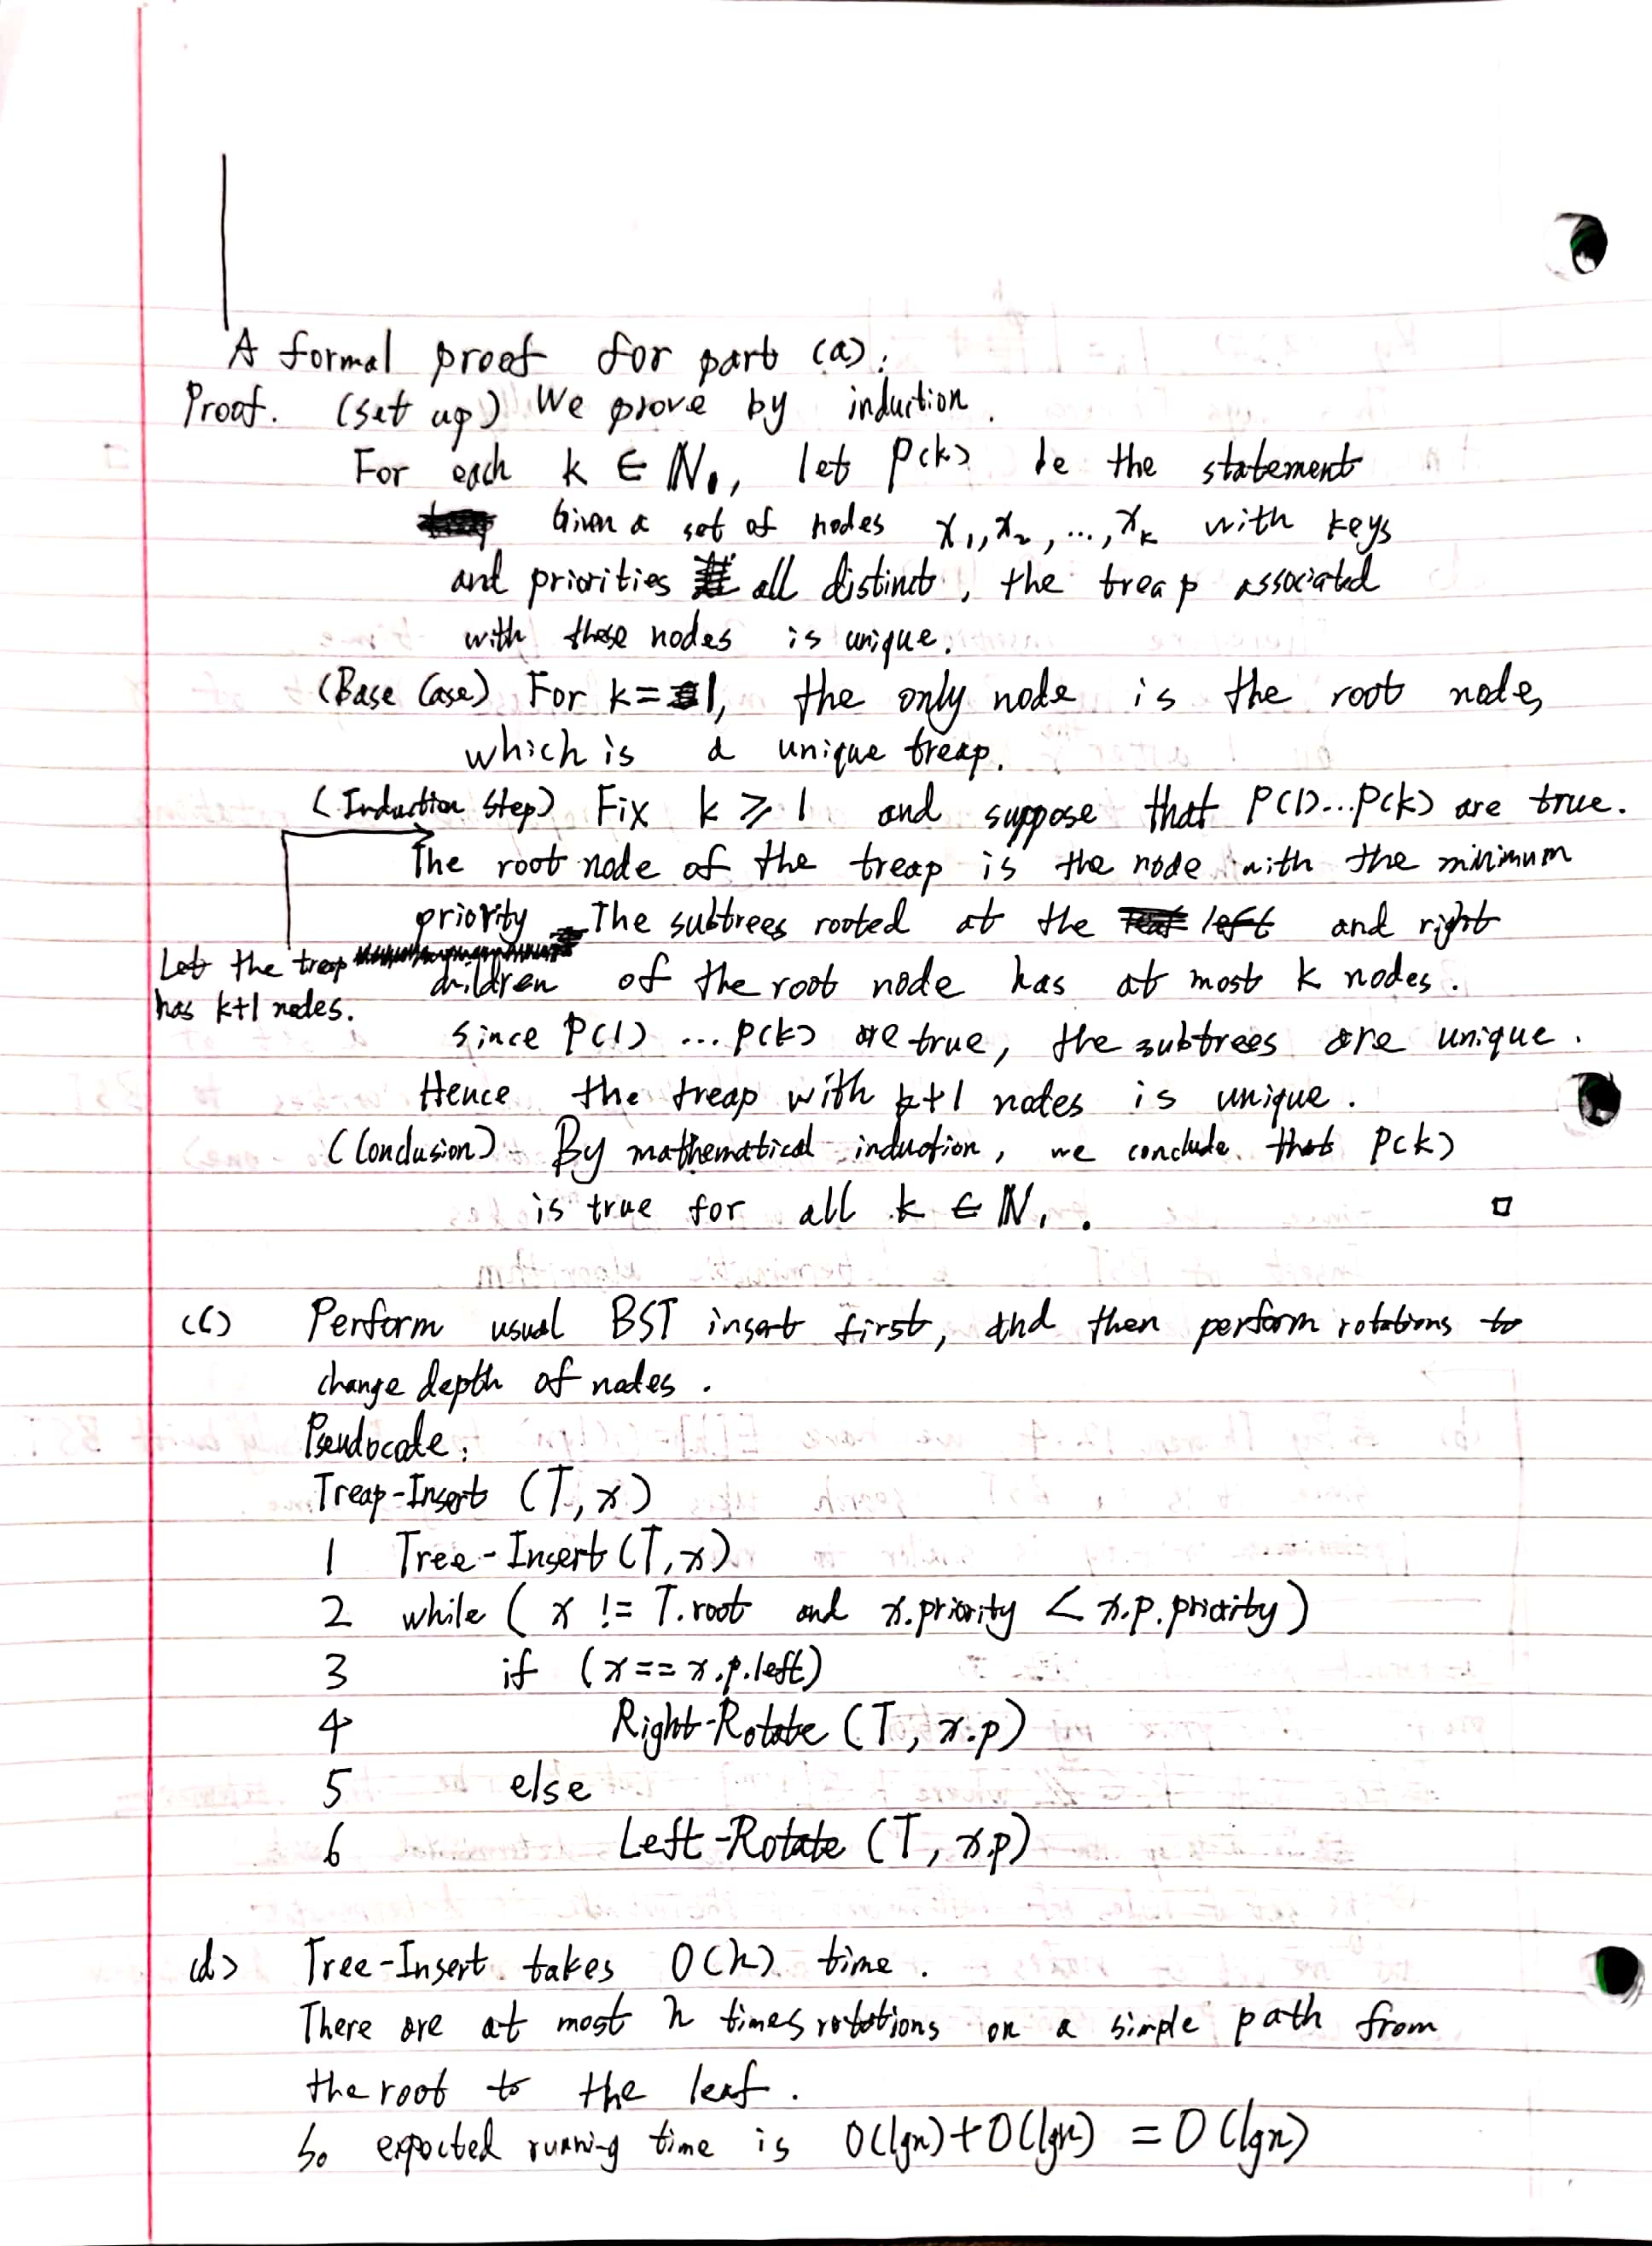 A formal proof for part (a):
Proof. (Set up) We prove by induction.
For each k ∈ ℕ₁, let P(k) be the statement
Given a set of nodes x₁, x₂, ..., xₖ with keys
and priorities all distinct, the treap associated
with these nodes is unique.
(Base Case) For k=1, the only node is the root node,
which is a unique treap.
(Induction Step) Fix k ⩾ 1 and suppose that P(1)...P(k) are true.
Let the treap
has k+1 nodes.
The root node of the treap is the node with the minimum
priority. The subtrees rooted at the left and right
children of the root node has at most k nodes.
Since P(1) ... P(k) are true, the subtrees are unique.
Hence the treap with k+1 nodes is unique.
(Conclusion) By mathematical induction, we conclude that P(k)
is true for all k ∈ ℕ₁. □
(c) Perform usual BST insert first, and then perform rotations to
change depth of nodes.
Pseudocode:
Treap-Insert (T, x)
1 Tree-Insert (T, x)
2 while ( x != T.root and x.priority < x.p.priority)
3 if (x == x.p.left)
4 Right-Rotate (T, x.p)
5 else
6 Left-Rotate (T, x.p)
(d) Tree-Insert takes O(h) time.
There are at most h times rotations on a simple path from
the root to the leaf.
So expected running time is O(lgn)+O(lgn) = O(lgn)